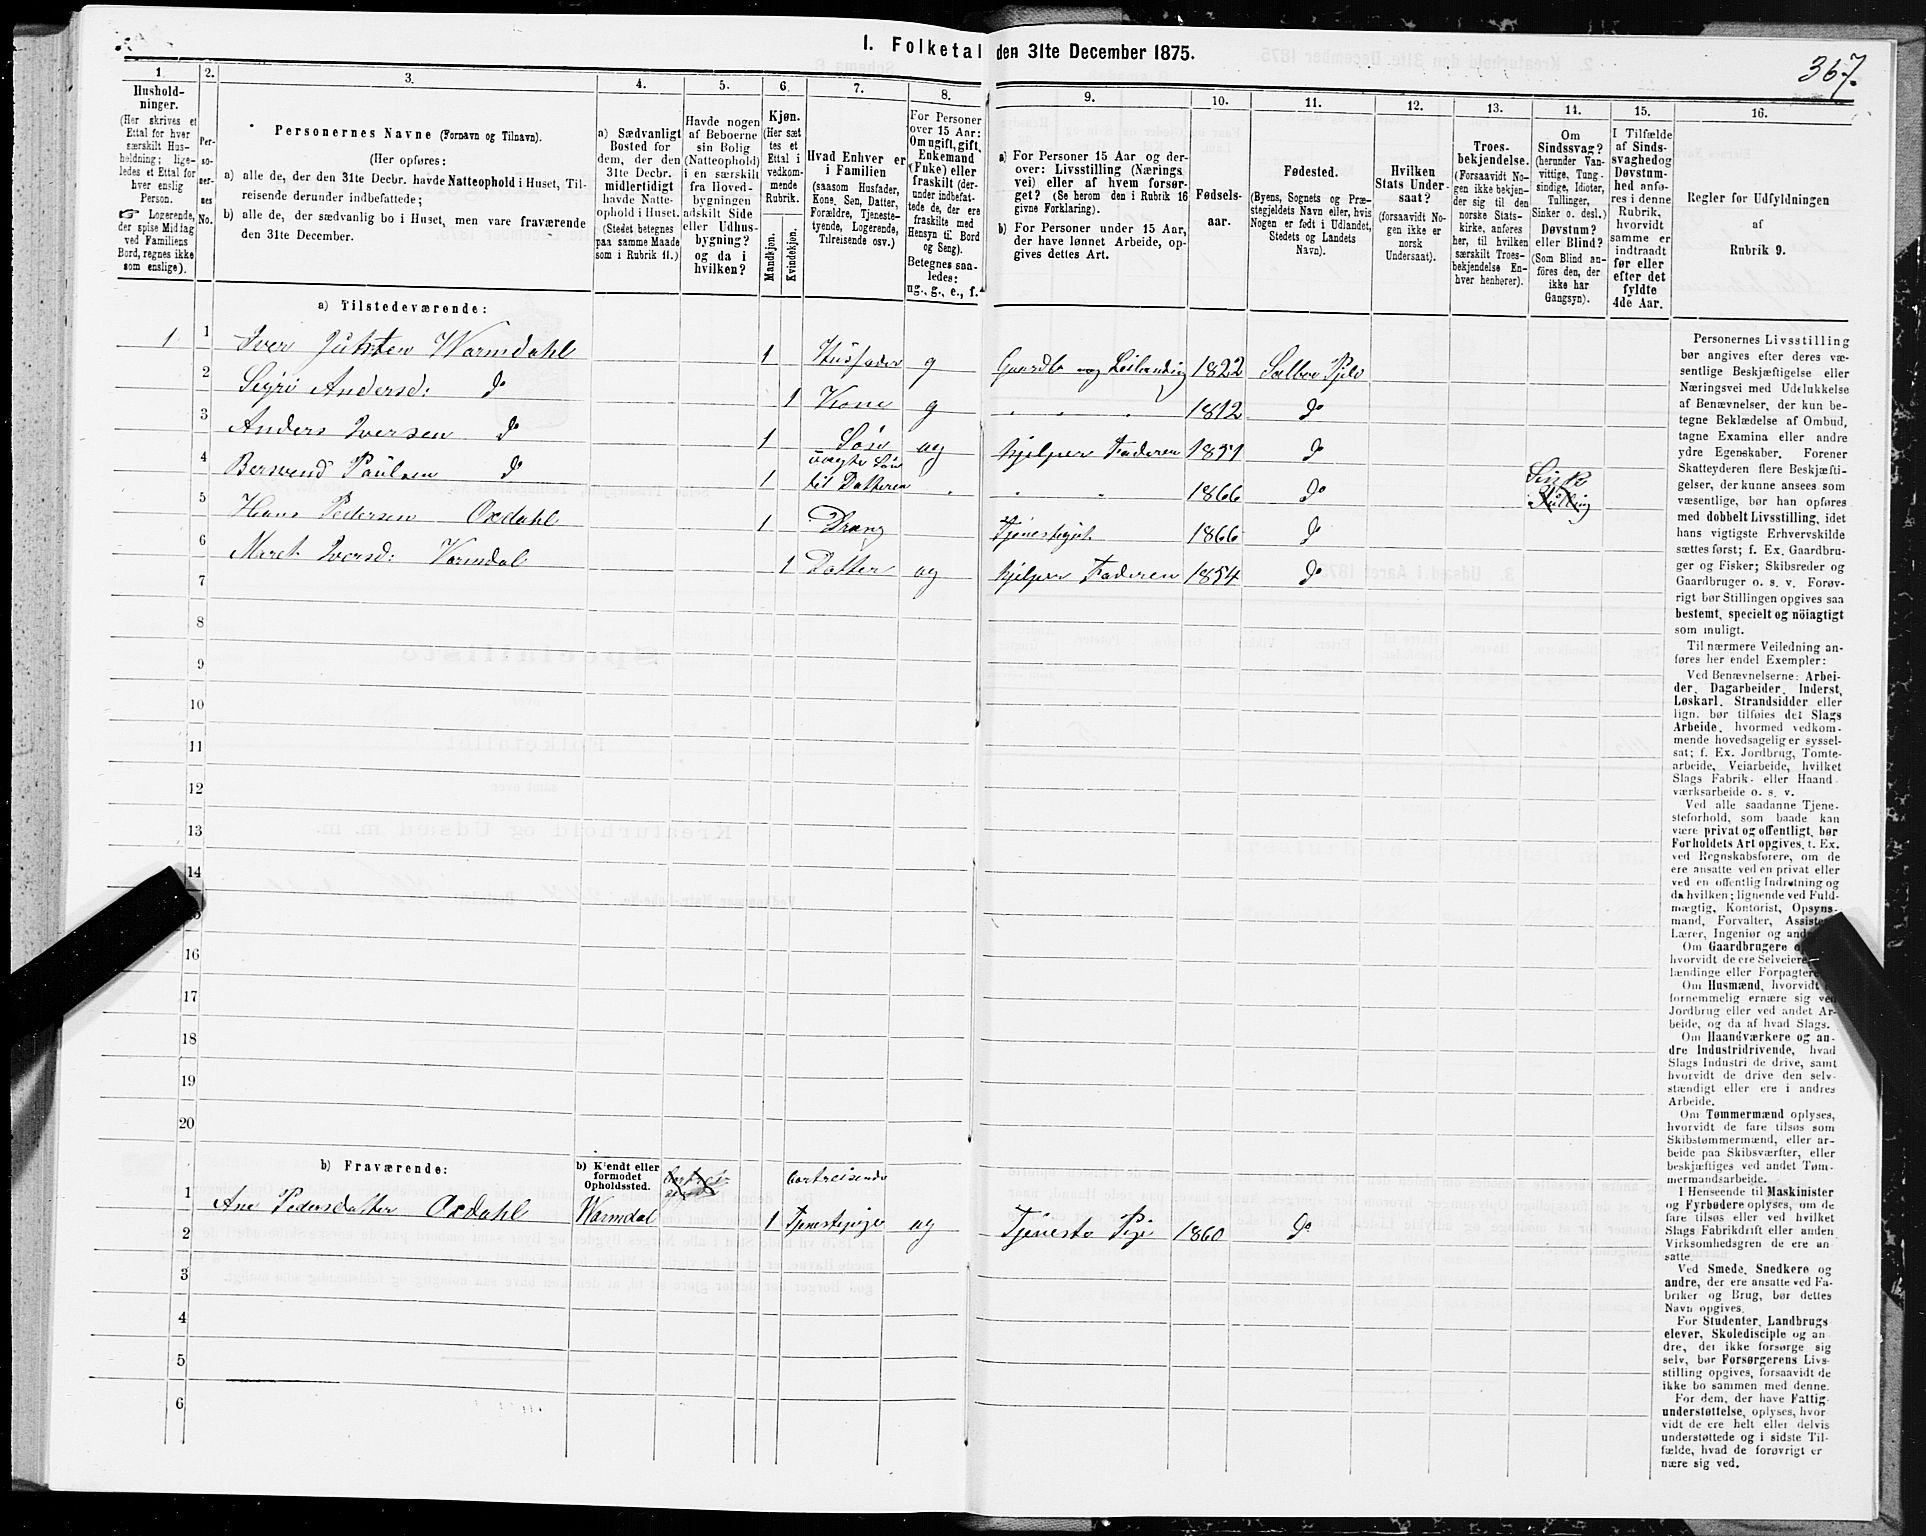 I. Folketal den 31te December 1875.
367.
1.
Hushold-
ninger.
(Her skrives et
Ettal for hver
særskilt Hus-
holdning; lige-
ledes et Ettal for
hver enslig
Person.
☞ Logerende,
der spise Middag
ved Familiens
Bord, regnes ikke
som enslige).
2.
Per-
so-
ner-
nes
No.
3.
Personernes Navne (Fornavn og Tilnavn).
(Her opføres:
a) alle de, der den 31te Decbr. havde Natteophold i Huset, Til-
reisende derunder indbefattede;
b) alle de, der sædvanlig bo i Huset, men vare fraværende
den 31te December.
4.
a) Sædvanligt
Bosted for
dem, der den
31te Decbr.
midlertidigt
havde Natte-
ophold i Huset.
(Stedet betegnes
paa samme Maade
som i Rubrik 11.)
5.
Havde nogen
af Beboerne
sin Bolig
(Natteophold)
i en særskilt
fra Hoved-
bygningen
adskilt Side
eller Udhus-
bygning?
og da i
hvilken?
6.
Kjøn.
(Her sæt
tes et
Ettal i
vedkom-
mende
Rubrik.
Mandkjøn.
Kvindekjøn.
7.
Hvad Enhver er
i Familien
(saasom Husfader,
Kone, Søn, Datter,
Forældre, Tjeneste-
tyende, Logerende,
Tilreisende osv.)
8.
For Personer
over 15 Aar:
Om ugift, gift,
Enkemand
(Enke) eller
fraskilt (der-
under indbefat-
tede de, der ere
fraskilte med
Hensyn til Bord
og Seng).
Betegnes saa-
ledes:
ug., g., e., f.
9.
a) For Personer 15 Aar og der-
over: Livsstilling (Nærings
vei) eller af hvem forsør-
get? (Se herom den i Rubrik 16
givne Forklaring).
b) For Personer under 15 Aar,
der have lønnet Arbeide, op-
gives dettes Art.
10.
Fødsels-
aar.
11.
Fødested.
(Byens, Sognets og Præ-
stegjeldets Navn eller, hvis
Nogen er født i Udlandet,
Stedets og Landets
Navn).
12.
Hvilken
Stats Under-
saat?
(forsaavidt No-
gen ikke er
norsk
Undersaat).
13.
Troes-
bekjendelse.
(Forsaavidt No-
gen ikke bekjen-
der sig til den
norske Stats-
kirke, anføres
her, til hvilken
særskilt Troes-
bekjendelse En-
hver henhører).
14.
Om
Sindssvag?
(herunder Van-
vittige, Tung-
sindige, Idioter,
Tullinger,
Sinker o. desl.)
Døvstum?
eller Blind?
(Som Blind an-
føres den, der
ikke har
Gangsyn).
15.
I Tilfælde
af Sinds-
svaghed og
Døvstum-
hed anfø-
res i denne
Rubrik,
hvorvidt
samme er
indtraadt
før eller
efter det
fyldte
4de Aar.
16.
Regler for Udfyldningen
af
Rubrik 9.
a) Tilstedeværende:
1 1 Iver Warmdahl 1 Husfader g 1822
2 Andersd: Do 1 Kone g " " " 1812 Do
3 Anders Iversen Do 1 Søn ug hjelper Faderen 1851 Do
4 Paulsen Do 1 Søn til Datteren " " " 1866 Do
5 Hans Pedersen Oxdahl 1 Dreng 1866 Do
6 Maret Iversd: Varmdal 1 Datter ug hjelper Faderen 1854 Do
7
8
9
10
11
12
13
14
16
17
18
19
20
b) Fraværende:
b) Kjendt eller
formodet
Opholdssted.
bortreisende
1 Ane Pedersdatter Oxdahl Warmdal 1 Tjenestepige ug Tjeneste Pige 1860 Do
2
3
4
5
6
Personernes Livsstilling
bør angives efter deres væ-
sentlige Beskjæftigelse eller
Næringsvei med Udelukkelse
af Benævnelser, der kun be-
tegne Beklædelse af Ombud,
tagne Examina eller andre
ydre Egenskaber. Forener
Skatteyderen flere Beskjæfti-
gelser, der kunne ansees som
væsentlige, bør han opføres
med dobbelt Livsstilling, idet
hans vigtigste Erhvervskilde
sættes først; f. Ex. Gaardbru-
ger og Fisker; Skibsreder og
Gaardbruger o. s. v. Forøv-
rigt bør Stillingen opgives saa
bestemt, specielt og nöiagtigt
som muligt.
Til nærmere Veiledning an-
føres her endel Exempler:
Ved Benævnelserne: Arbei-
der, Dagarbeider, Inderst,
Løskarl, Strandsidder eller
lign. bør tilføies det Slags
Arbeide, hvormed vedkom-
mende hovedsagelig er syssel-
sat; f. Ex. Jordbrug, Tomte-
arbeide, Veiarbeide, hvilket
Slags Fabrik- eller Haand-
værksarbeide o. s. v.
Ved alle saadanne Tjene-
steforhold, som baade kan
være privat og offentligt, bør
Forholdets Art opgives, f. Ex.
ved Regnskabsførere, om de
ere ansatte ved en privat eller
ved en offentlig Indretning og
da hvilken; lignende ved Fuld-
mægtig, Kontorist, Opsyns-
mand, Forvalter,
Lærer, Ingeniør og
Om Gaardbrugere
hvorvidt de ere Selveiere
lændinge eller Forpagtere
Om Husmænd, hvorvidt
fornemmelig ernære sig ved
Jordbrug eller ved andet Ar-
beide, og da af hvad Slags.
Om Haandværkere og an-
dre Industridrivende, hvad
Slags Industri de drive, samt
hvorvidt de drive den selv-
stændigt eller ere i andres
Arbeide.
Om Tømmermænd oplyses,
hvorvidt de fare tilsøs som
Skibstømmermænd, eller ar-
beide paa Skibsværfter, eller
beskjæftiges ved andet Tøm-
mermandsarbeide.
I Henseende til Maskinister
og Fyrbødere oplyses, om de
fare tilsøs eller ved hvilket
Slags Fabrikdrift eller anden
Virksomhedsgren de ere an-
satte.
Ved Smede, Snedkere og
andre, der ere ansatte ved Fa-
briker og Brug, bør dettes
Navn opgives.
For Studenter, Landbrugs
elever, Skoledisciple og an
dre, der ikke forsørge sig
selv, bør Forsørgerens Livs-
stilling opgives, forsaavidt de
ikke bo sammen med denne.
For dem, der have Fattig
understøttelse, oplyses, hvor
vidt de ere helt eller delvis
understøttede og i sidste Til-
fælde, hvad de forøvrigt er
nære sig ved.